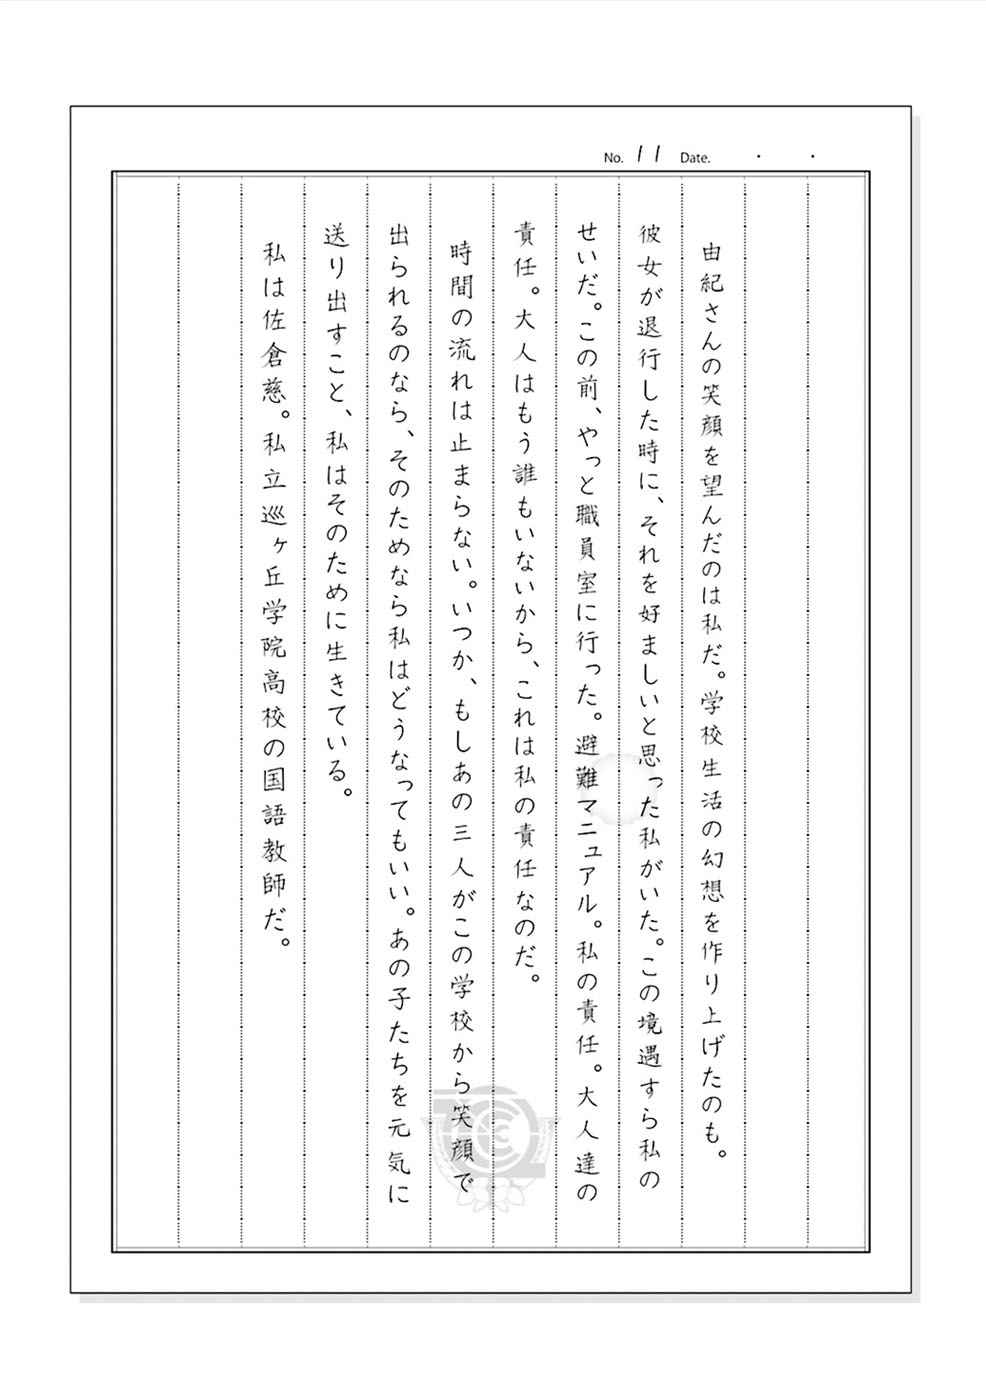 No. 11 Date. ・ ・
由紀さんの笑顔を望んだのは私だ。学校生活の幻想を作り上げたのも。
彼女が退行した時に、それを好ましいと思った私がいた。この境遇すら私の
せいだ。この前、やっと職員室に行った。避難マニュアル。私の責任。大人達の
責任。大人はもう誰もいないから、これは私の責任なのだ。
時間の流れは止まらない。いつか、もしあの三人がこの学校から笑顔で
出られるのなら、そのためなら私はどうなってもいい。あの子たちを元気に
送り出すこと、私はそのために生きている。
私は佐倉慈。私立巡ヶ丘学院高校の国語教師だ。